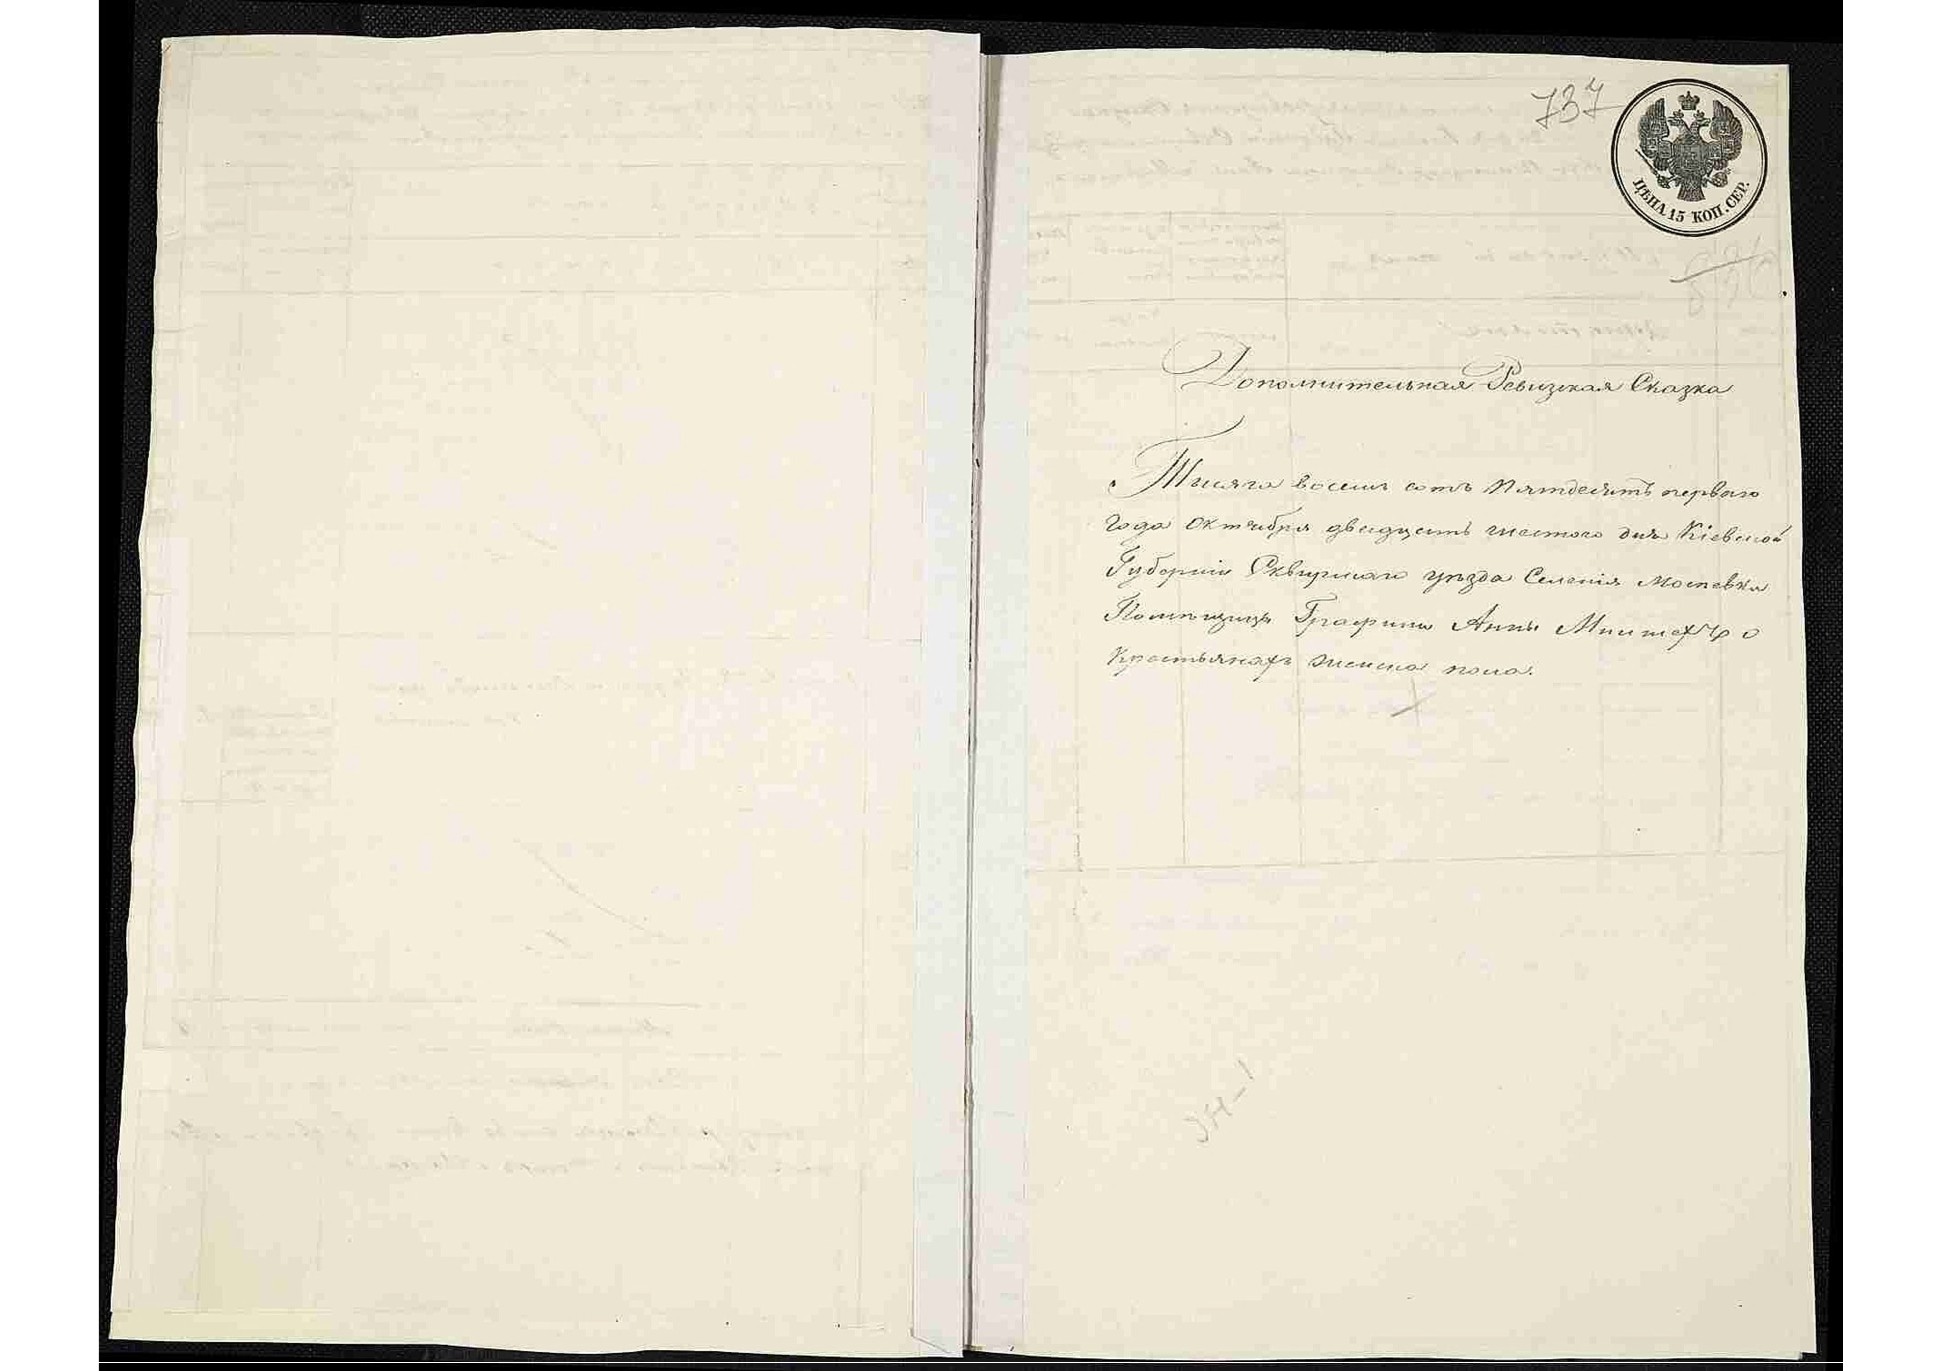 737
ЦѢНА 15 КОП. СЕР.
Дополнительная Ревизская Сказка
Тысяча восемь сотъ пятдесятъ перваго
года октября двадцать шестого дня Кіевской
Губерніи Сквирскаго уѣзда Селенія
Помѣщицы Графини Анны Мнишехъ о
крестьянахъ женска пола.